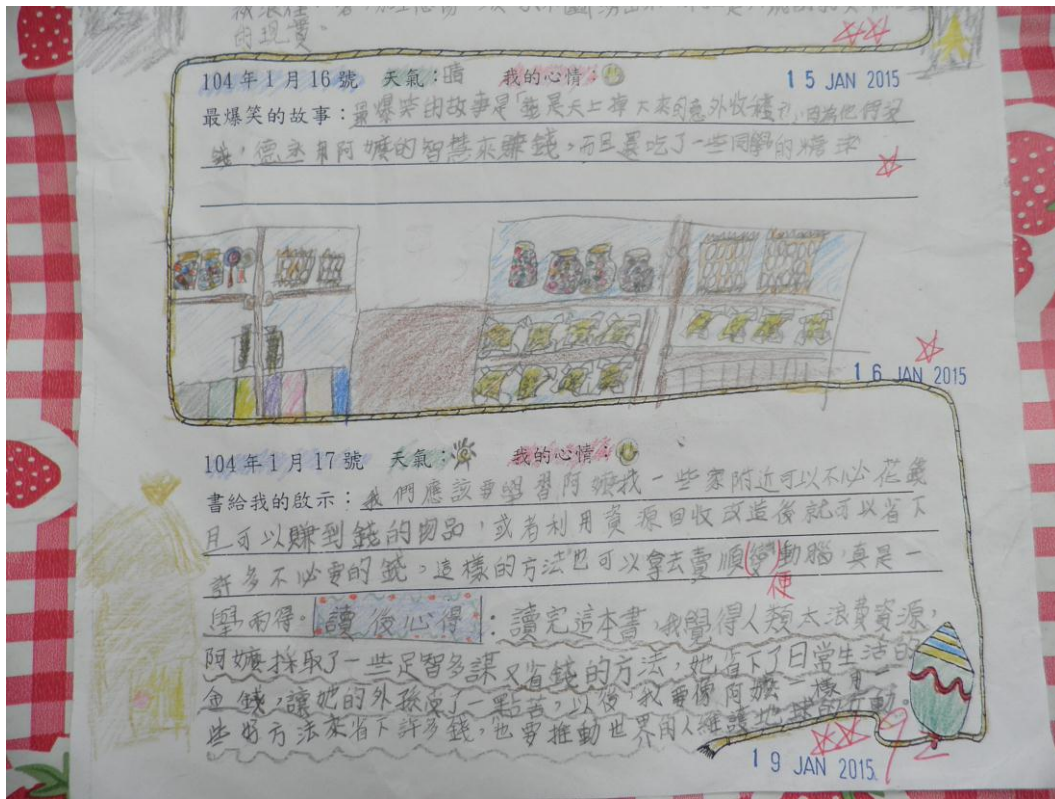 的現實。
104年1月16號 天氣：晴 我的心情： 15 JAN 2015
最爆笑的故事：最爆笑的故事是「
錢，德永用阿嬤的智慧來賺錢，而且還吃了一些同學的
16 JAN 2015
104年1月17號 天氣： 我的心情：
書給我的啟示：我們應該要學習阿嬤找一些家附近可以不必花錢
且可以賺到錢的物品，或者利用資源回收改造後就可以省下
許多不必要的錢，這樣的方法也可以拿去賣順(變)動腦，真是一
便
舉兩得。讀後心得：讀完這本書，我覺得人類太浪費資源，
阿嬤採取了一些足智多謀又省錢的方法，她省下了日常生活的
金錢，讓她的外孫 以後我要像阿嬤一樣用一
些好方法來省下許多錢，也要推動世界的人維護地球的行動。
19 JAN 2015